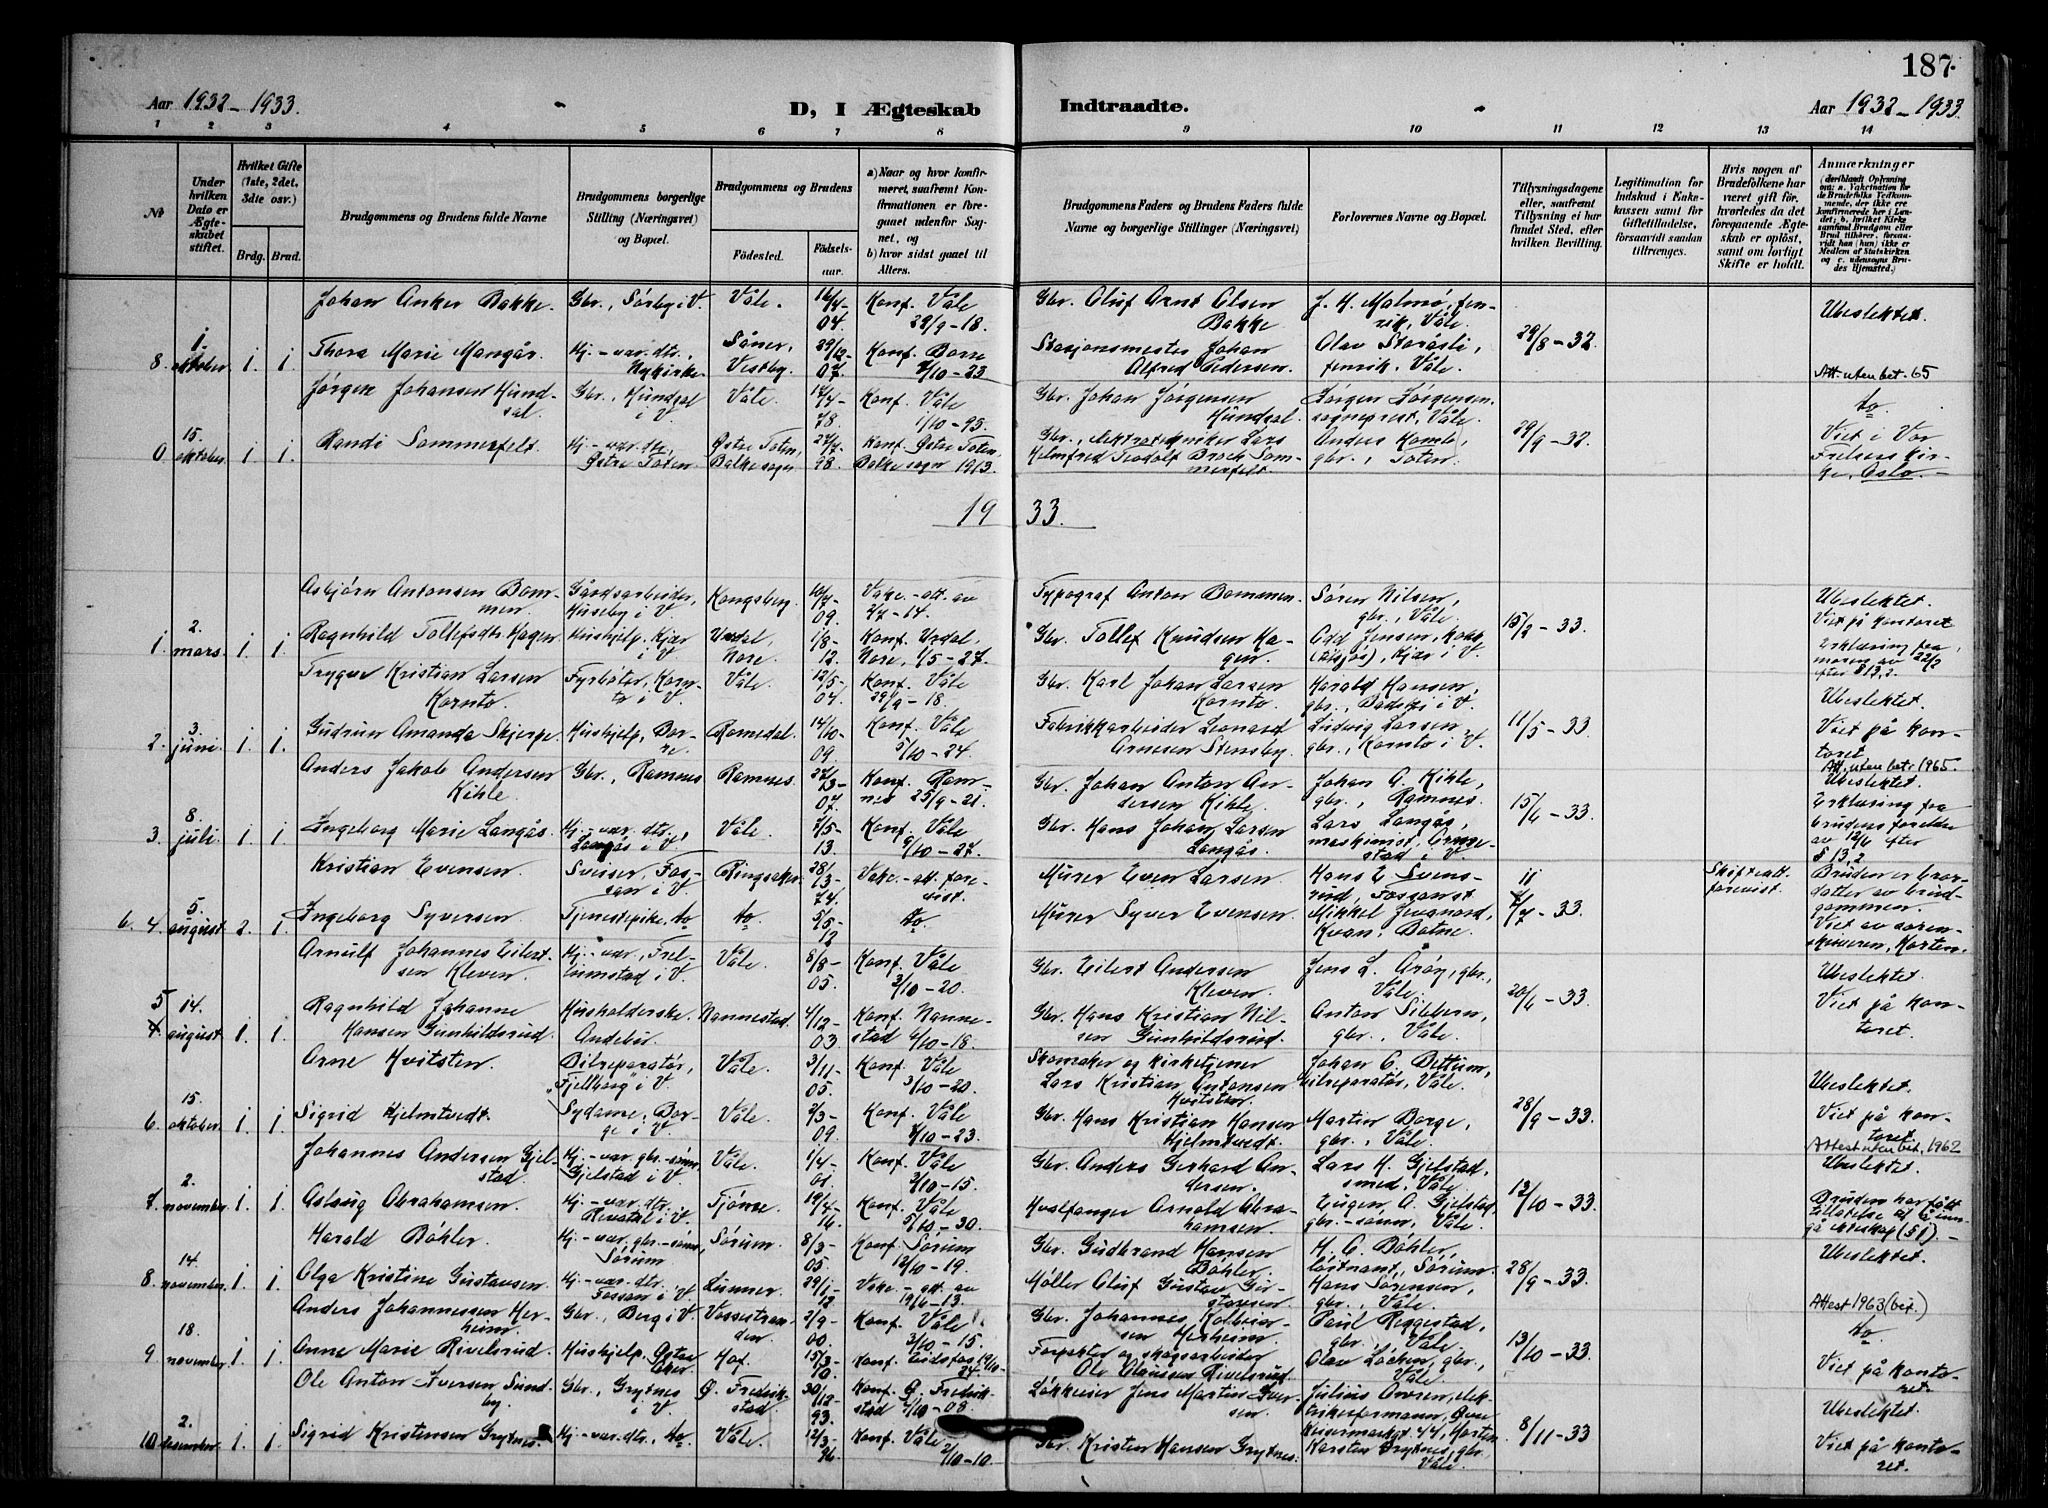 187.
Aar 1932-1933.
D, I Ægteskab Indtraadte.
Aar 1932-1933.
1 2 3 4 5 6 7 8 9 10 11 12 13 14
Nr.
Under hvilken Dato er Ægteskabet stiftet.
Hvilket Gifte (1ste, 2det, 3dte osv.)
Brdg. Brud.
Brudgommens og Brudens fulde Navne
Brudgommens borgerlige Stilling (Næringsvei) og Bopæl.
Brudgommens og Brudens
Födested. Födselsaar.
a) Naar og hvor konfirmeret, saafremt Konfirmationen er foregaaet udenfor Sognet, og
b) hvor sidst gaaet til Alters.
Brudgommens Faders og Brudens Faders fulde Navne og borgerlige Stillinger (Næringsvei)
Forlovernes Navne og Bopæl.
Tillysningsdagene eller, saafremt Tillysning ei har fundet Sted, efter hvilken Bevilling.
Legitimation for Indskud i Enkekassen samt for Giftetilladelse, forsaavidt saadan tiltrænges.
Hvis nogen af Brudefolkene har været gift før, hvorledes da det foregaaende Ægteskab er opløst, samt om lovligt Skifte er holdt.
Anmærkninger (deriblandt Oplysning om: a. Vakcination for de Brudefolks Vedkommende, der ikke ere konfirmerede her i Landet; b. hvilket Kirkesamfund Brudgom eller Brud tilhører, forsaavidt han (hun) ikke er Medlem af Statskirken og c. udensogns Brudes Hjemsted.)
Johan Anker Bakke. Gbr., Sørby i V. Våle. 16/4-04. Konf. Våle 29/9-18. Gbr. Oluf Arnt Olsen Bakke J. H. Malmø, fenrik, Våle. Ubeslektet.
8. 1. oktober 1. 1. Thora Marie Mangår. Hj.-vær. dtr., Nykirke. Såner, Vestby. 29/12-07. Konf. Borre 7/10-23 Stasjonsmester Johan Alfred Pedersen. Olav Starasli, fenrik, Våle. 29/8-32. Att. uten bet. 65
Jørgen Johansen Hundsal. Gbr., Hundsal i V. Våle. 17/4-78. Konf. Våle 1/10-95. Gbr. Johan Jørgensen Hundsal. Jørgen Jørgensen, sogneprest, Våle. do.
0 15. oktober. 1. 1. Randi Sommerfelt. Hj.-vær. dtr., Østre Toten. Østre Toten, Balke sogn. 27/7-98. Konf. Østre Toten, Balke sogn 1913. Gbr., elektrotekniker Lars Helmfred Teodolf Broch Sommerfelt. Anders Homle, gbr., Toten. 29/9-32. Viet i Vor Frelsers kirke, Oslo.
1933.
Asbjørn Antonsen Bommen. Gårdsarbeider, Huseby i V. Kongsberg. 09. Vake.-att. av 2/7-14. Typograf Anton Bommen. Søren Nilsen, gbr., Våle. Ubeslektet. Viet på kontoret
1. 2. mars. 1. 1. Ragnhild Tollefsdtr. Hagen Hushjelp, Kjær i V. Uvdal, Nore. 1/8-12. Konf. Uvdal, Nore, 1/5-27. Gbr. Tollef Knudsen Hagen. Odd Jensen, Kjær i V. 15/2-33. Erklæring fra moren av 22/2 efter § 13, 2.
Trygve Kristian Larsen Kornto. Fyrbøter, Kornto i V. Våle. 12/5-04. Konf. Våle 29/9-18. Gbr. Karl Johan Larsen Kornto Harald Hansen, gbr., i V. Ubeslektet.
2. 3. juni. 1. 1. Gudrun Amanda Skjerpe. Hushjelp, Borre. Romedal. 14/10-09 Konf. Våle 5/10-24. Fabrikkarbeider Leonard Arnesen Stensby. Ludvig Larsen, gbr., Kornto i V. 11/5-33 Viet på kontoret. Att. uten bet. 1965.
Anders Jakob Andersen Kihle. Gbr., Ramnes Ramnes. 27/3-07. Konf. Ramnes 25/9-21. Gbr. Johan Anton Andersen Kihle. Johan A. Kihle, gbr., Ramnes. Ubeslektet.
3. 8. juli. 1. 1. Ingeborg Marie Langås. Hj.-vær. dtr., Langås i V. Våle. 13. Konf. Våle 9/10-27. Gbr. Hans Johan Larsen Langås. Lars Langås, maskinist, i V. 15/6-33 Erklæring fra brudens foreldre av 12/6 efter § 13, 2
Kristian Evensen. Sveiser, Fossan i V. Ringsaker. 28/3-74. Vake.-att. forevist. Murer Even Larsen. Hans E. Svensrud, Fossan Skifteatt. forevist. Bruden er brordatter av brudgommen.
6. 4. 5. august. 2. 1. Ingeborg Syversen. Tjenestepike, do do. 5/5-12 do Murer Syver Evensen. Mikkel Kvan, Botne. 7/7-33 Viet av sorenskriveren, Horten.
Arnulf Johannes Eilertsen Kleven. Hj.-vær., i V. Våle. 8/8-05. Konf. Våle 3/10-20. Gbr. Eilert Andersen Kleven. Jens L. Arøy, gbr., Våle. Ubeslektet.
5 14. august. 1. 1. Ragnhild Johanne Hansen Gunhildsrud. Husholderske, Andebu. Nannestad. 4/12-03 Konf. Nannestad 6/10-18. Gbr. Hans Kristian Nilsen Gunhildsrud. Anton Sibbern, gbr., Våle. 20/6-33 Viet på kontoret.
Arne Hvitsten. Bilreparatør, "Fjellborg" i V. Våle. 3/11-05. Konf. Våle 3/10-20. Skomaker og kirketjener Lars Kristian Antonsen Hvitsten. Johan C. Bettum, bilreparatør, Våle. Ubeslektet.
6. 15. oktober. 1. 1. Sigrid Hjelmtvedt. Sydame, Borge i V. Våle. 2/3-09. Konf. Våle 7/10-23. Gbr. Hans Kristian Hansen Hjelmtvedt. Martin Borge, gbr., Våle. 28/9-33. Viet på kontoret. Attest uten bet. 1962
Johannes Andersen Gjelstad. Hj.-vær. gbr.-sønn, Gjelstad i V. Våle. 1/4-01. Konf. Våle 3/10-15. Gbr. Anders Gerhard Andersen. Lars H. Gjelstad, smed, Våle. Ubeslektet.
7. 2. november. 1. 1. Aslaug Abrahamsen. Hj.-vær. dtr., Revetal i V. Tjøme. 19/4-16. Konf. Våle 5/10-30. Hvalfanger Arnold Abrahamsen. Eugen A. Gjelstad, gbr.-sønn, Våle. 12/10-33 Bruden har fått tillatelse til å inngå ekteskap (§ 1).
Harald Bøhler. Hj.-vær. gbr.-sønn, Sørum Sørum. 8/3-05. Konf. Sørum 12/10-19. Gbr. Gudbrand Hansen Bøhler. H. C. Bøhler, løitnant, Sørum. Ubeslektet.
8. 14. november. 1. 1. Olga Kristine Gustavsen. Hj.-vær. dtr., Fossan i V. Lunner. 29/1-12 Vake.-att. av 19/6-13. Møller Oluf Gustav Gustavsen. Hans Sørensen, gbr., Våle. 28/9-33. Attest 1963 (bet.)
Anders Johannessen Herheim. Gbr., Berg i V. Vossestranden. 2/9-00. Konf. Våle 3/10-15. Gbr. Johannes Kolbeinsen Herheim. Paul Reggestad, gbr. Våle. do.
9 18. november 1. 1. Anne Marie Revelsrud. Hushjelp, Østre Hof. 15/3-10. Konf. Eidsfoss 19/10-24 Forpakter og skogsarbeider Ole Olaussen Revelsrud. Olav Løken, gbr., Våle. 13/10-33. Viet på kontoret.
Ole Anton Iversen Sundby. Gbr., Grytnes i V. Ø. Fredrikstad. 30/12-93. Konf. Ø. Fredrikstad 4/10-08. Løkkeier Jens Martin Iversen. Julius elektrikerformann, Øvre Keisermarksgt. 44, Horten Ubeslektet.
10. 2. desember. 1. 1. Sigrid Kristensen Grytnes. Hj.-vær. dtr., do. Våle. 12/3-96 Konf. Våle 2/10-10. Gbr. Kristen Hansen Grytnes. Karsten Grytnes, gbr., Våle. 8/11-33 Viet på kontoret.